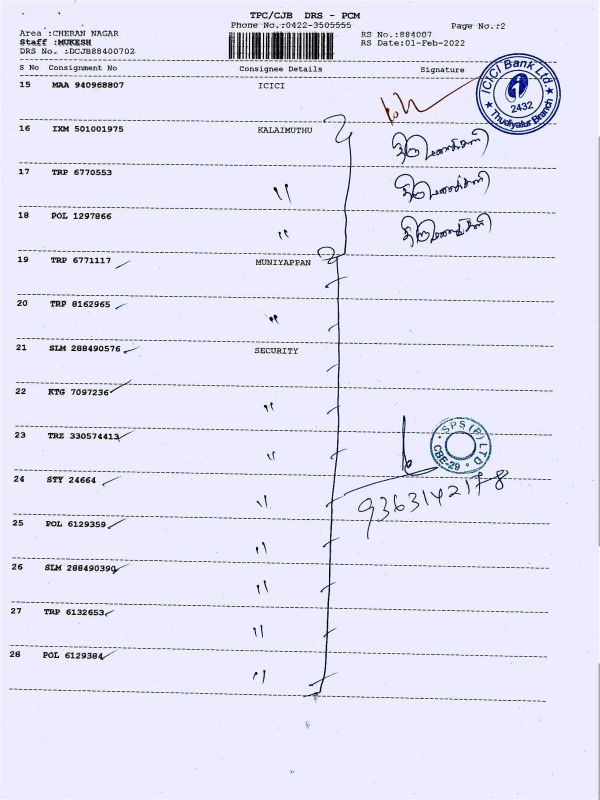 TPC/CJB DRS - PCM
Phone No.:0422-3505555
Page No.:2
Area :CHERAN NAGAR
RS No.:884007
Staff :MUKESH
RS Date:01-Feb-2022
DRS No. :DCJB88400702
S No Consignment No Consignee Details Signature
15 MAA 940968807 ICICI
ICICI Bank Ltd.
2432
Thudiyalur Branch
16 IXM 501001975 KALAIMUTHU
17 TRP 6770553 "
18 POL 1297866 "
19 TRP 6771117 MUNIYAPPAN
20 TRP 8162965 "
21 SLM 288490576 SECURITY
22 KTG 7097236 "
23 TRZ 330574413 "
SPS (B) LTD
CBE-29
24 STY 24664 "
9363142178
25 POL 6129359 "
26 SLM 288490390 "
27 TRP 6132653 "
28 POL 6129384 "